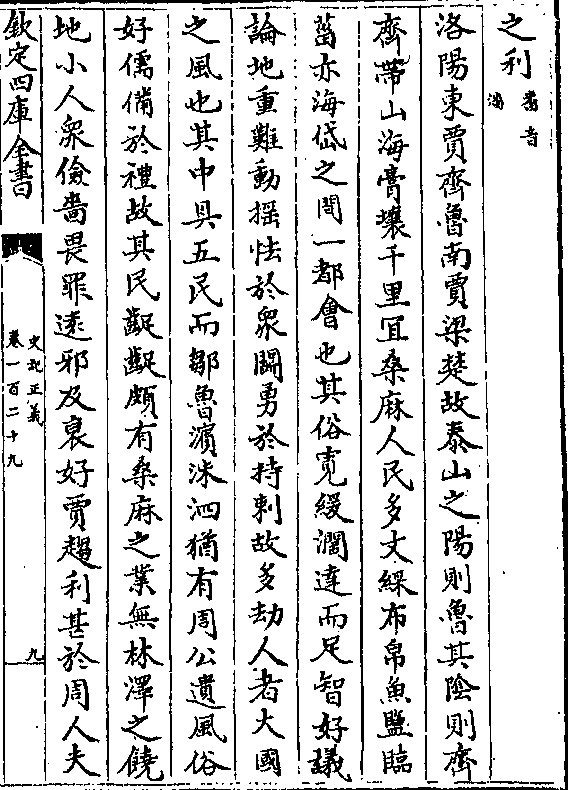 之利畨音潘
洛陽東賈齊魯南賈梁楚故泰山之陽則魯其隂則齊
齊帶山海膏壤千里宜桑麻人民多文綵布帛魚鹽臨
菑亦海岱之間一都㑹也其俗寛緩濶達而足智好議
論地重難動摇怯於衆鬭勇於持刺故多劫人者大國
之風也其中具五民而鄒魯濵洙泗猶有周公遺風俗
好儒備於禮故其民齪齪頗有桑麻之業無林澤之饒
地小人衆儉嗇畏罪逺邪及衰好賈趨利甚於周人夫
欽定四庫全書
史記正義
卷一百二十九
九